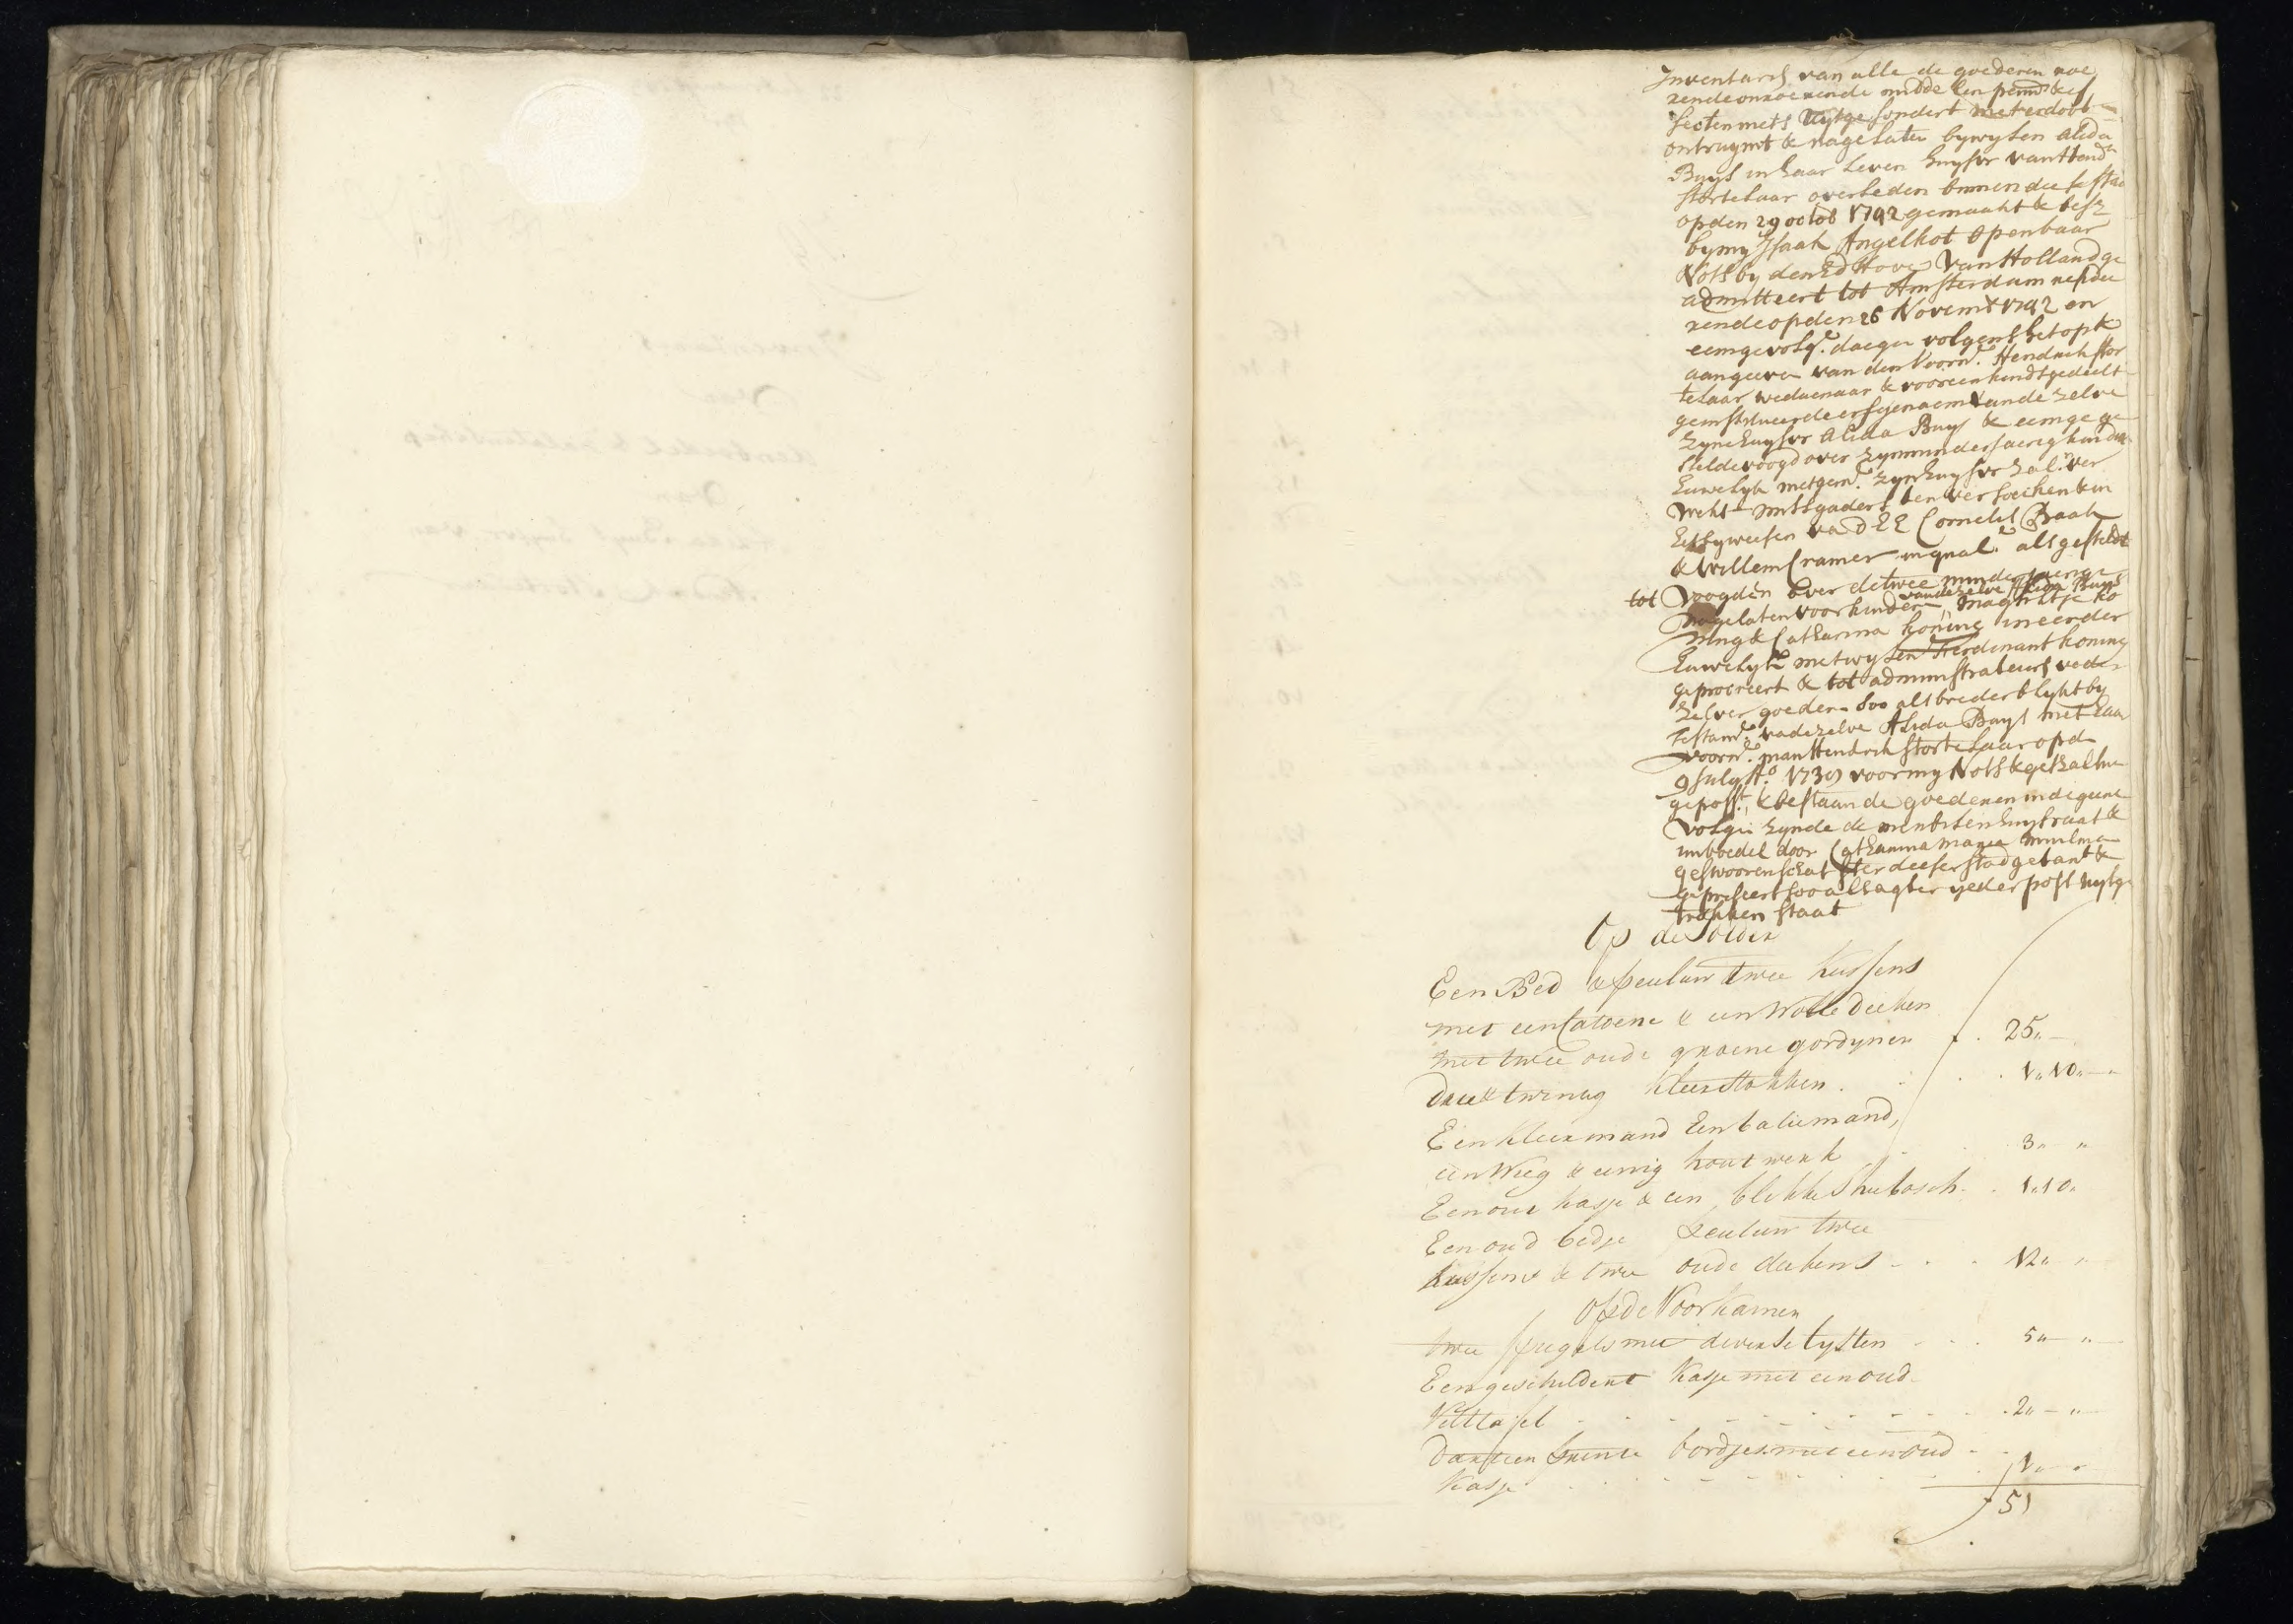 Inventaris van alle de goederen roe
rende onroerende midde len penn & ef
fecten niets uytgesondert metter doot
ontruymt & nagelaten by wylen Alida
Buys in haar Leven huysvr van Hend
Stortelaar overleden binnen dese stad
op den 29 octob 1742 gemaakt & besz
by my Isaak Angelkot Openbaar
Nots by den Ed Hove van Holland ge
admitteert tot Amsterdam resider
rende op den 26 Novem 1742 en
eenige volg. daegen volgens het op &
aangeven van den voorn. Hendrik Stor
telaar weduenaar & voor een kindtgedeelt
geinstitueerde erfgenaem van de zelve
zyne huysvr Alida Buys & eenige ge
stelde voogd over zyn minderjaerig kind in
huwelyk met gem. zyn huysvr zal. ver
wekt mitsgaders ten versoeken & in
het bywesen va d E E Cornelis Baak
& Willem Cramer in qual. als gestelde
tot voogden over de twee minderjaerige
van dezelve Alida Buys
nagelaten voorkinderen Magteltje Ko
ning & Catharina Koning in eerder
huwelyk met wylen Ferdinant Koning
geprocreert & tot administrateurs va der
zelver goederen soo als breder blykt by
testam. va dezelve Alida Buys met haar
voorn. man Hendrik Stortelaar op d
9 July Ao. 1739 voor my Nots & get: alhier
gepass. & bestaan de goederen in de geene
volge: zynde de meubilen huysraat &
inboedel door Catharina Maria
geswooren schatster deeser stad getaxt &
gepriseert soo als agter yeder post uytge
trokken staat
Op de Solder
Een Bed & peuluw twee kussens
met een Catoene & een Wolle deeken
met twee oude groene gordynen . . 25„ —
Drie & twintig kleerstokken . . . 1„ 10„ —
Een kleermand Een baliemand,
een Wieg & eenig hout werk . . 3„ „
Een oud kasje & een blikke . . 1„ 10„
Een oud bedje peuluw twee
kussens & twee oude dekens . . . 12„ „
Op de Voorkamer
twee spiegels met diverse lysten . . . 5„ — „
Een geschildert kasje met een oud
. . . 2„ — „
Dartien bordjes met een oud
kasje . . . 1„ „
51